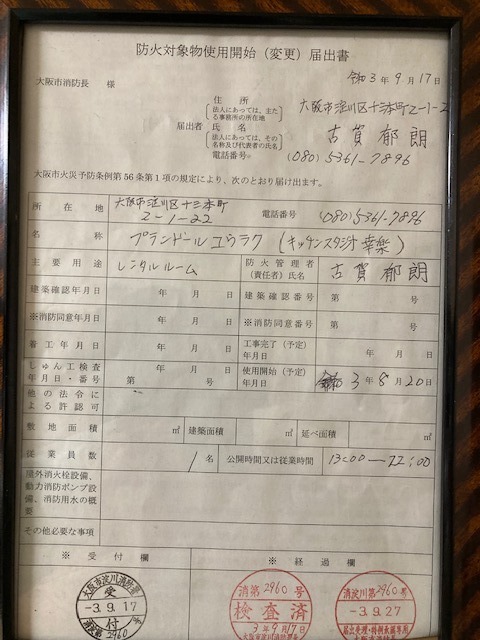 防火対象物使用開始（変更）届出書
大阪市消防長 様
令和3年9月17日
届出者
住所
（法人にあっては、主たる事務所の所在地）
大阪市淀川区十三本町2-1-2
氏名
（法人にあっては、その名称及び代表者の氏名）
古賀郁朗
電話番号
(080) 5361-7896
大阪市火災予防条例第56条第1項の規定により、次のとおり届け出ます。
所在地 大阪市淀川区十三本町 2-1-22 電話番号 (080) 5361-7896
名称 プランドールユウラク（キッチンスタジオ幸楽）
主要用途 レンタルルーム 防火管理者（責任者）氏名 古賀郁朗
建築確認年月日 年 月 日 建築確認番号 第 号
※消防同意年月日 年 月 日 ※消防同意番号 第 号
着工年月日 年 月 日 工事完了（予定）年月日 年 月 日
しゅん工検査年月日・番号 年 月 日 第 号 使用開始（予定）年月日 令和3年8月20日
他の法令による許認可
敷地面積 ㎡ 建築面積 ㎡ 延べ面積 ㎡
従業員数 1名 公開時間又は従業時間 13:00—22:00
屋外消火栓設備、動力消防ポンプ設備、消防用水の概要
その他必要な事項
※ 受付欄 ※ 経過欄
大阪市淀川消防署
受付
-3.9.17
消第2960号
検査済
3年9月17日
消淀川第2960号
-3.9.27